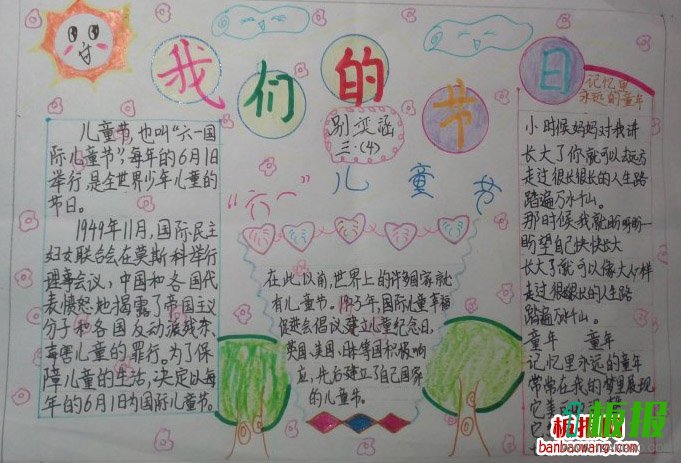 我们的节日
别 涵
三·(4)
“六一”儿童节
儿童节,也叫“六一国
际儿童节”,每年的6月1日
举行,是全世界少年儿童的
节日。
1949年11月,国际民主
妇女联合会在莫斯科举行
理事会议,中国和各国代
表愤怒地揭露了帝国主义
分子和各国反动派残杀、
毒害儿童的罪行。为了保
障儿童的生活,决定以每
年的6月1日为国际儿童节。
在此以前,世界上的许多国家就
有儿童节。19 年,国际儿童幸福
促进会倡议建立儿童纪念日,
英国、美国、日本等国积极响
应,先后建立了自己国家
的儿童节。
记忆里
永远的童年
小时候妈妈对我讲
长大了你就可以
走过很长很长的人生路
踏遍万水千山。
那时候我就盼盼盼
盼望自己快快长大
长大了就可以像大人一样
走过很长很长的人生路
踏遍万水千山。
童年 童年
记忆里永远的童年
常常在我的梦里展现
板报
banbaowang.com